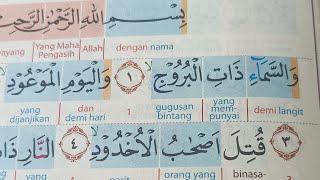 بِسْمِ اللهِ الرَّحْمٰنِ الرَّحِيْمِ
dengan nama Allah Yang Maha Pengasih
وَالسَّمَاۤءِ ذَاتِ الْبُرُوْجِ ١ وَالْيَوْمِ الْمَوْعُوْدِ
demi langit yang mem-punyai gugusan bintang 1 dan demi hari yang dijanjikan
٣ قُتِلَ اَصْحٰبُ الْاُخْدُوْدِ ٤ النَّارِ
3 binasa- orang yang parit 4 yang